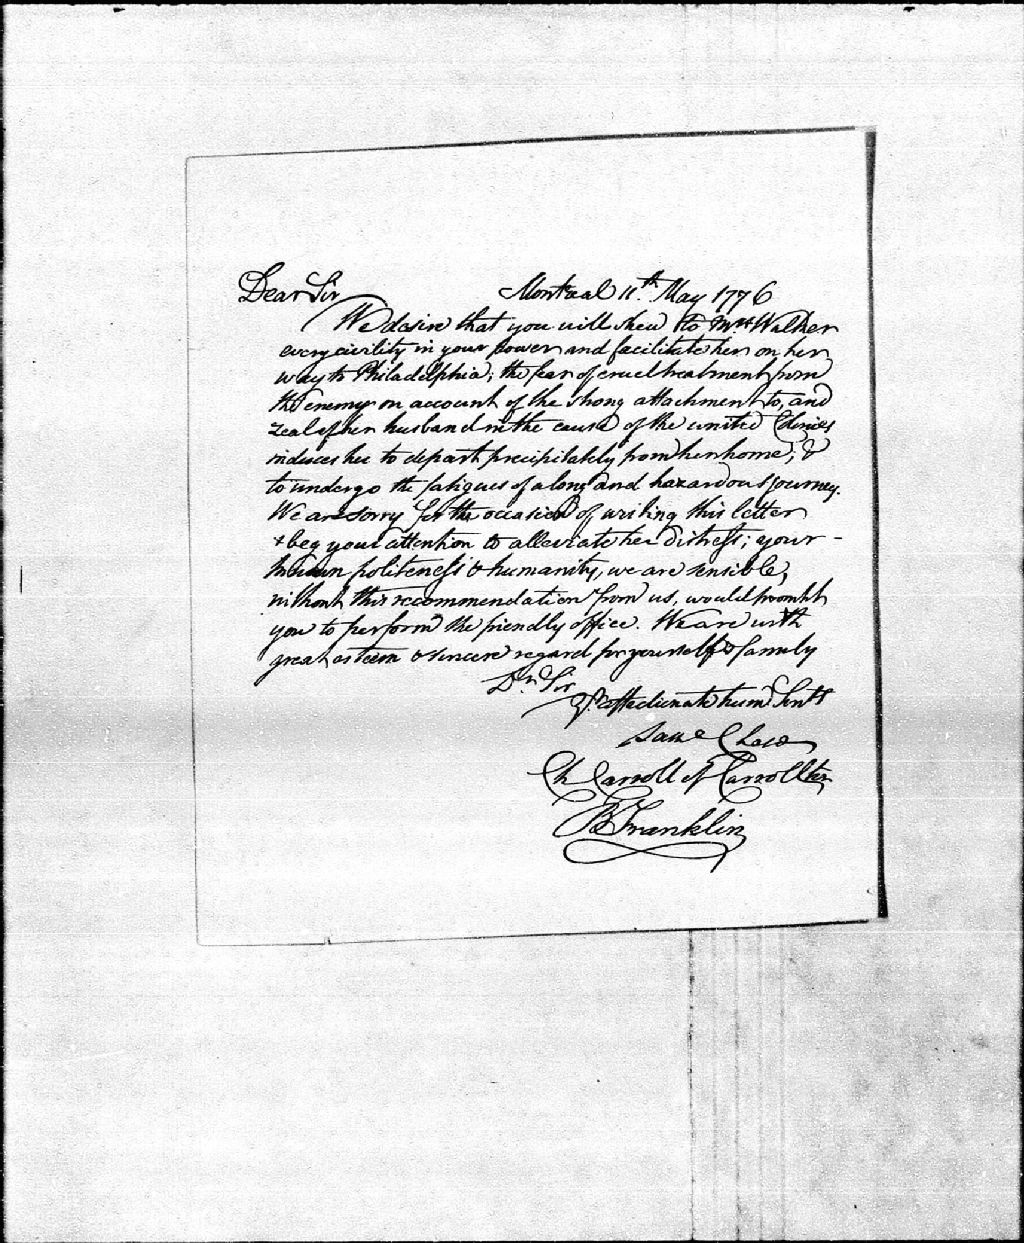 Dear Sir Montreal 11th. May 1776
We desire that you will shew to Mrs Walker
every civility in your power and facilitate her on her
way to Philadelphia; the fear of cruel treatment from
the enemy on account of the strong attachment to, and
zeal of her husband in the cause of the united Colonies
induces her to depart precipitately from her home; &
to undergo the fatigues of a long and hazardous journey.
We are sorry for the occasion of writing this letter
& beg your attention to alleviate her distress; your -
known politeness & humanity, we are sensible,
without this recommendation from us, would prompt
you to perform the friendly office. We are with
great esteem & sincere regard for yourself & family
Dr. Sir
yr. affectionate hum. Servts
Saml Chase
Ch Carroll of Carrollton
B Franklin